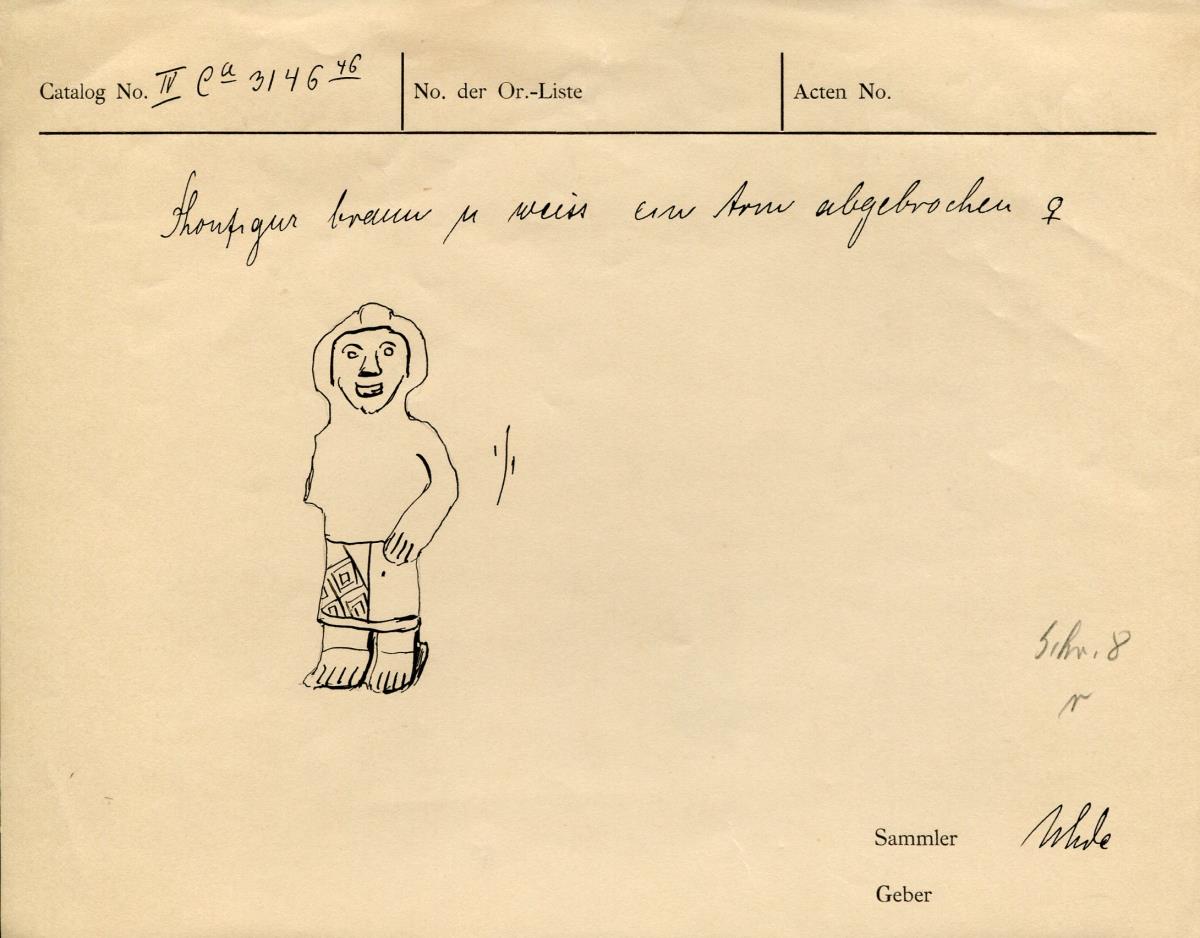 Catalog No. IV Ca 3146 46
No. der Or.-Liste
Acten No.
Thonfigur braun u weiss ein Arm abgebrochen ♀
1/1
Schr. 8
r
Sammler Uhde
Geber